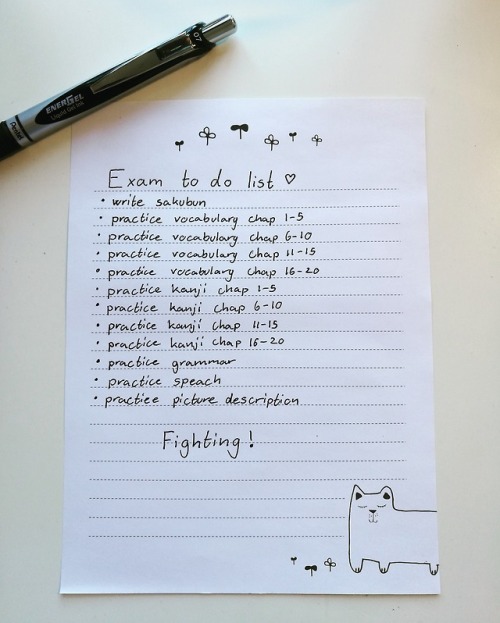 07
ENERGEL
Liquid Gel Ink
Pentel
Exam to do list ♡
• write sakubun
• practice vocabulary chap 1-5
• practice vocabulary chap 6-10
• practice vocabulary chap 11-15
• practice vocabulary chap 16-20
• practice kanji chap 1-5
• practice kanji chap 6-10
• practice kanji chap 11-15
• practice kanji chap 16-20
• practice grammar
• practice speach
• practice picture description
Fighting!